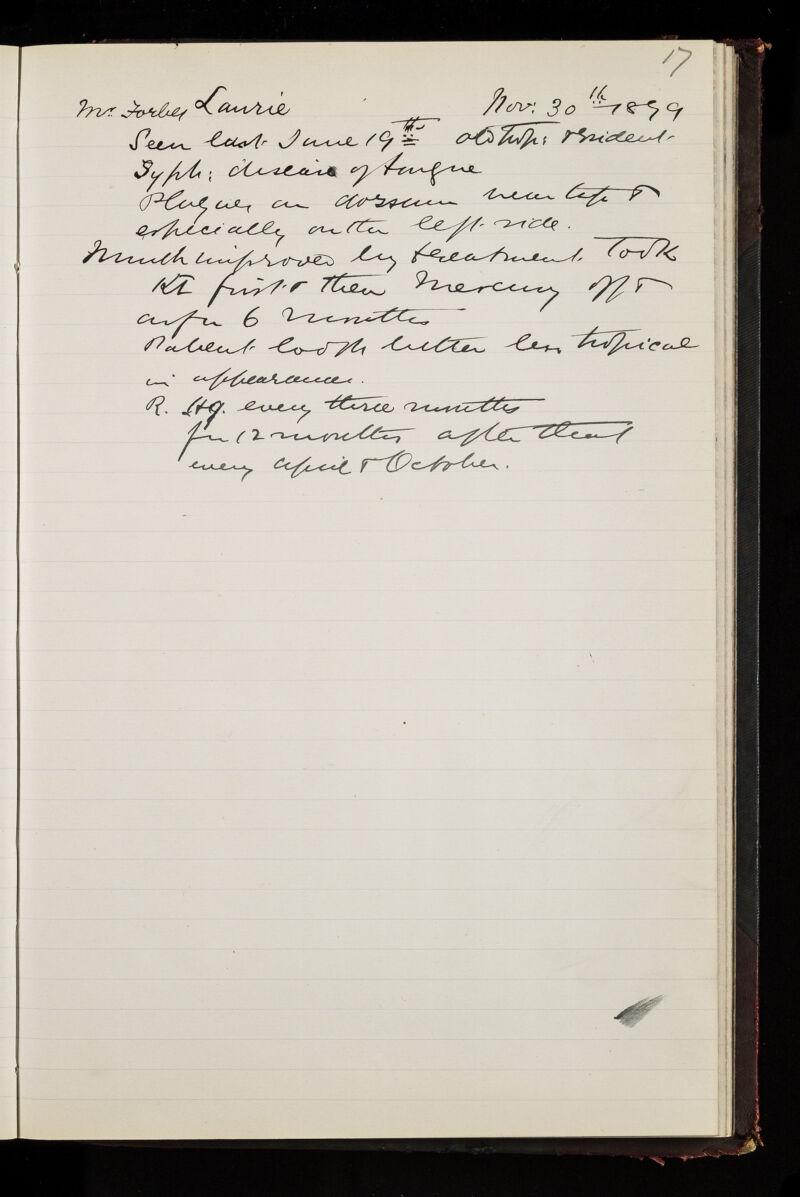 17
Mr. Forbes Laurie Nov: 30th 1899
Seen last June 19th old trop: resident
Syph: disease of tongue
Plaques on dorsum near tip &
especially on the left side.
Much improved by treatment Took
KI first & then Mercury off &
on for 6 months
Patient looks better less tropical
in appearance.
R. Hg. every three months
for 12 months after that
every April & October.